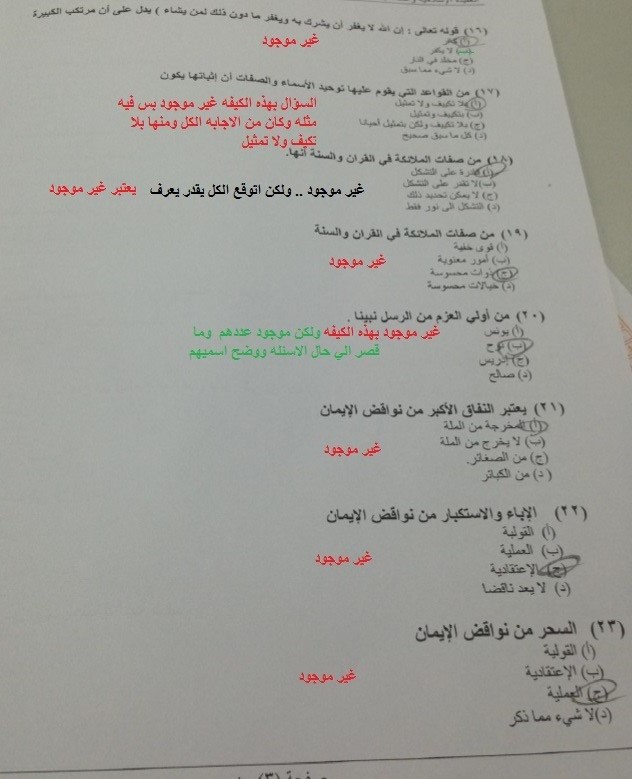 (١٦) قوله تعالى : إن الله لا يغفر أن يشرك به ويغفر ما دون ذلك لمن يشاء ) يدل على أن مرتكب الكبيرة
(أ) كافر
غير موجود
(ب) لا يكفر
(ج) مخلد في النار
(د) لا شيء مما سبق
(١٧) من القواعد التي يقوم عليها توحيد الأسماء والصفات أن إثباتها يكون
(أ) بلا تكييف ولا تمثيل
(ب) بتكييف وتمثيل
(ج) بلا تكييف ولكن بتمثيل أحيانا
(د) كل ما سبق صحيح
السؤال بهذه الكيفه غير موجود بس فيه
مثله وكان من الاجابه الكل ومنها بلا
تكيف ولا تمثيل
(١٨) من صفات الملائكة في القران والسنة أنها.
(أ) قادرة على التشكل
(ب) لا تقدر على التشكل
غير موجود .. ولكن اتوقع الكل يقدر يعرف يعتبر غير موجود
(ج) لا يمكن تحديد ذلك
(د) التشكل الى نور فقط
(١٩) من صفات الملائكة في القران والسنة
(أ) قوى خفية
(ب) أمور معنوية
غير موجود
(ج) ذوات محسوسة
(د) خيالات محسوسة
(٢٠) من أولي العزم من الرسل نبينا .
(أ) يونس
(ب) نوح
(ج) إدريس
(د) صالح
غير موجود بهذه الكيفه ولكن موجود عددهم وما
قصر الي حال الاسئله ووضح اسميهم
(٢١) يعتبر النفاق الأكبر من نواقض الإيمان
(أ) المخرجة من الملة
(ب) لا يخرج من الملة
غير موجود
(ج) من الصغائر.
(د) من الكبائر
(٢٢) الإباء والاستكبار من نواقض الإيمان
(أ) القولية
(ب) العملية
غير موجود
(ج) الإعتقادية
(د) لا يعد ناقضا
(٢٣) السحر من نواقض الإيمان
(أ) القولية
(ب) الإعتقادية
غير موجود
(ج) العملية
(د) لا شيء مما ذكر
صفحة (٣)